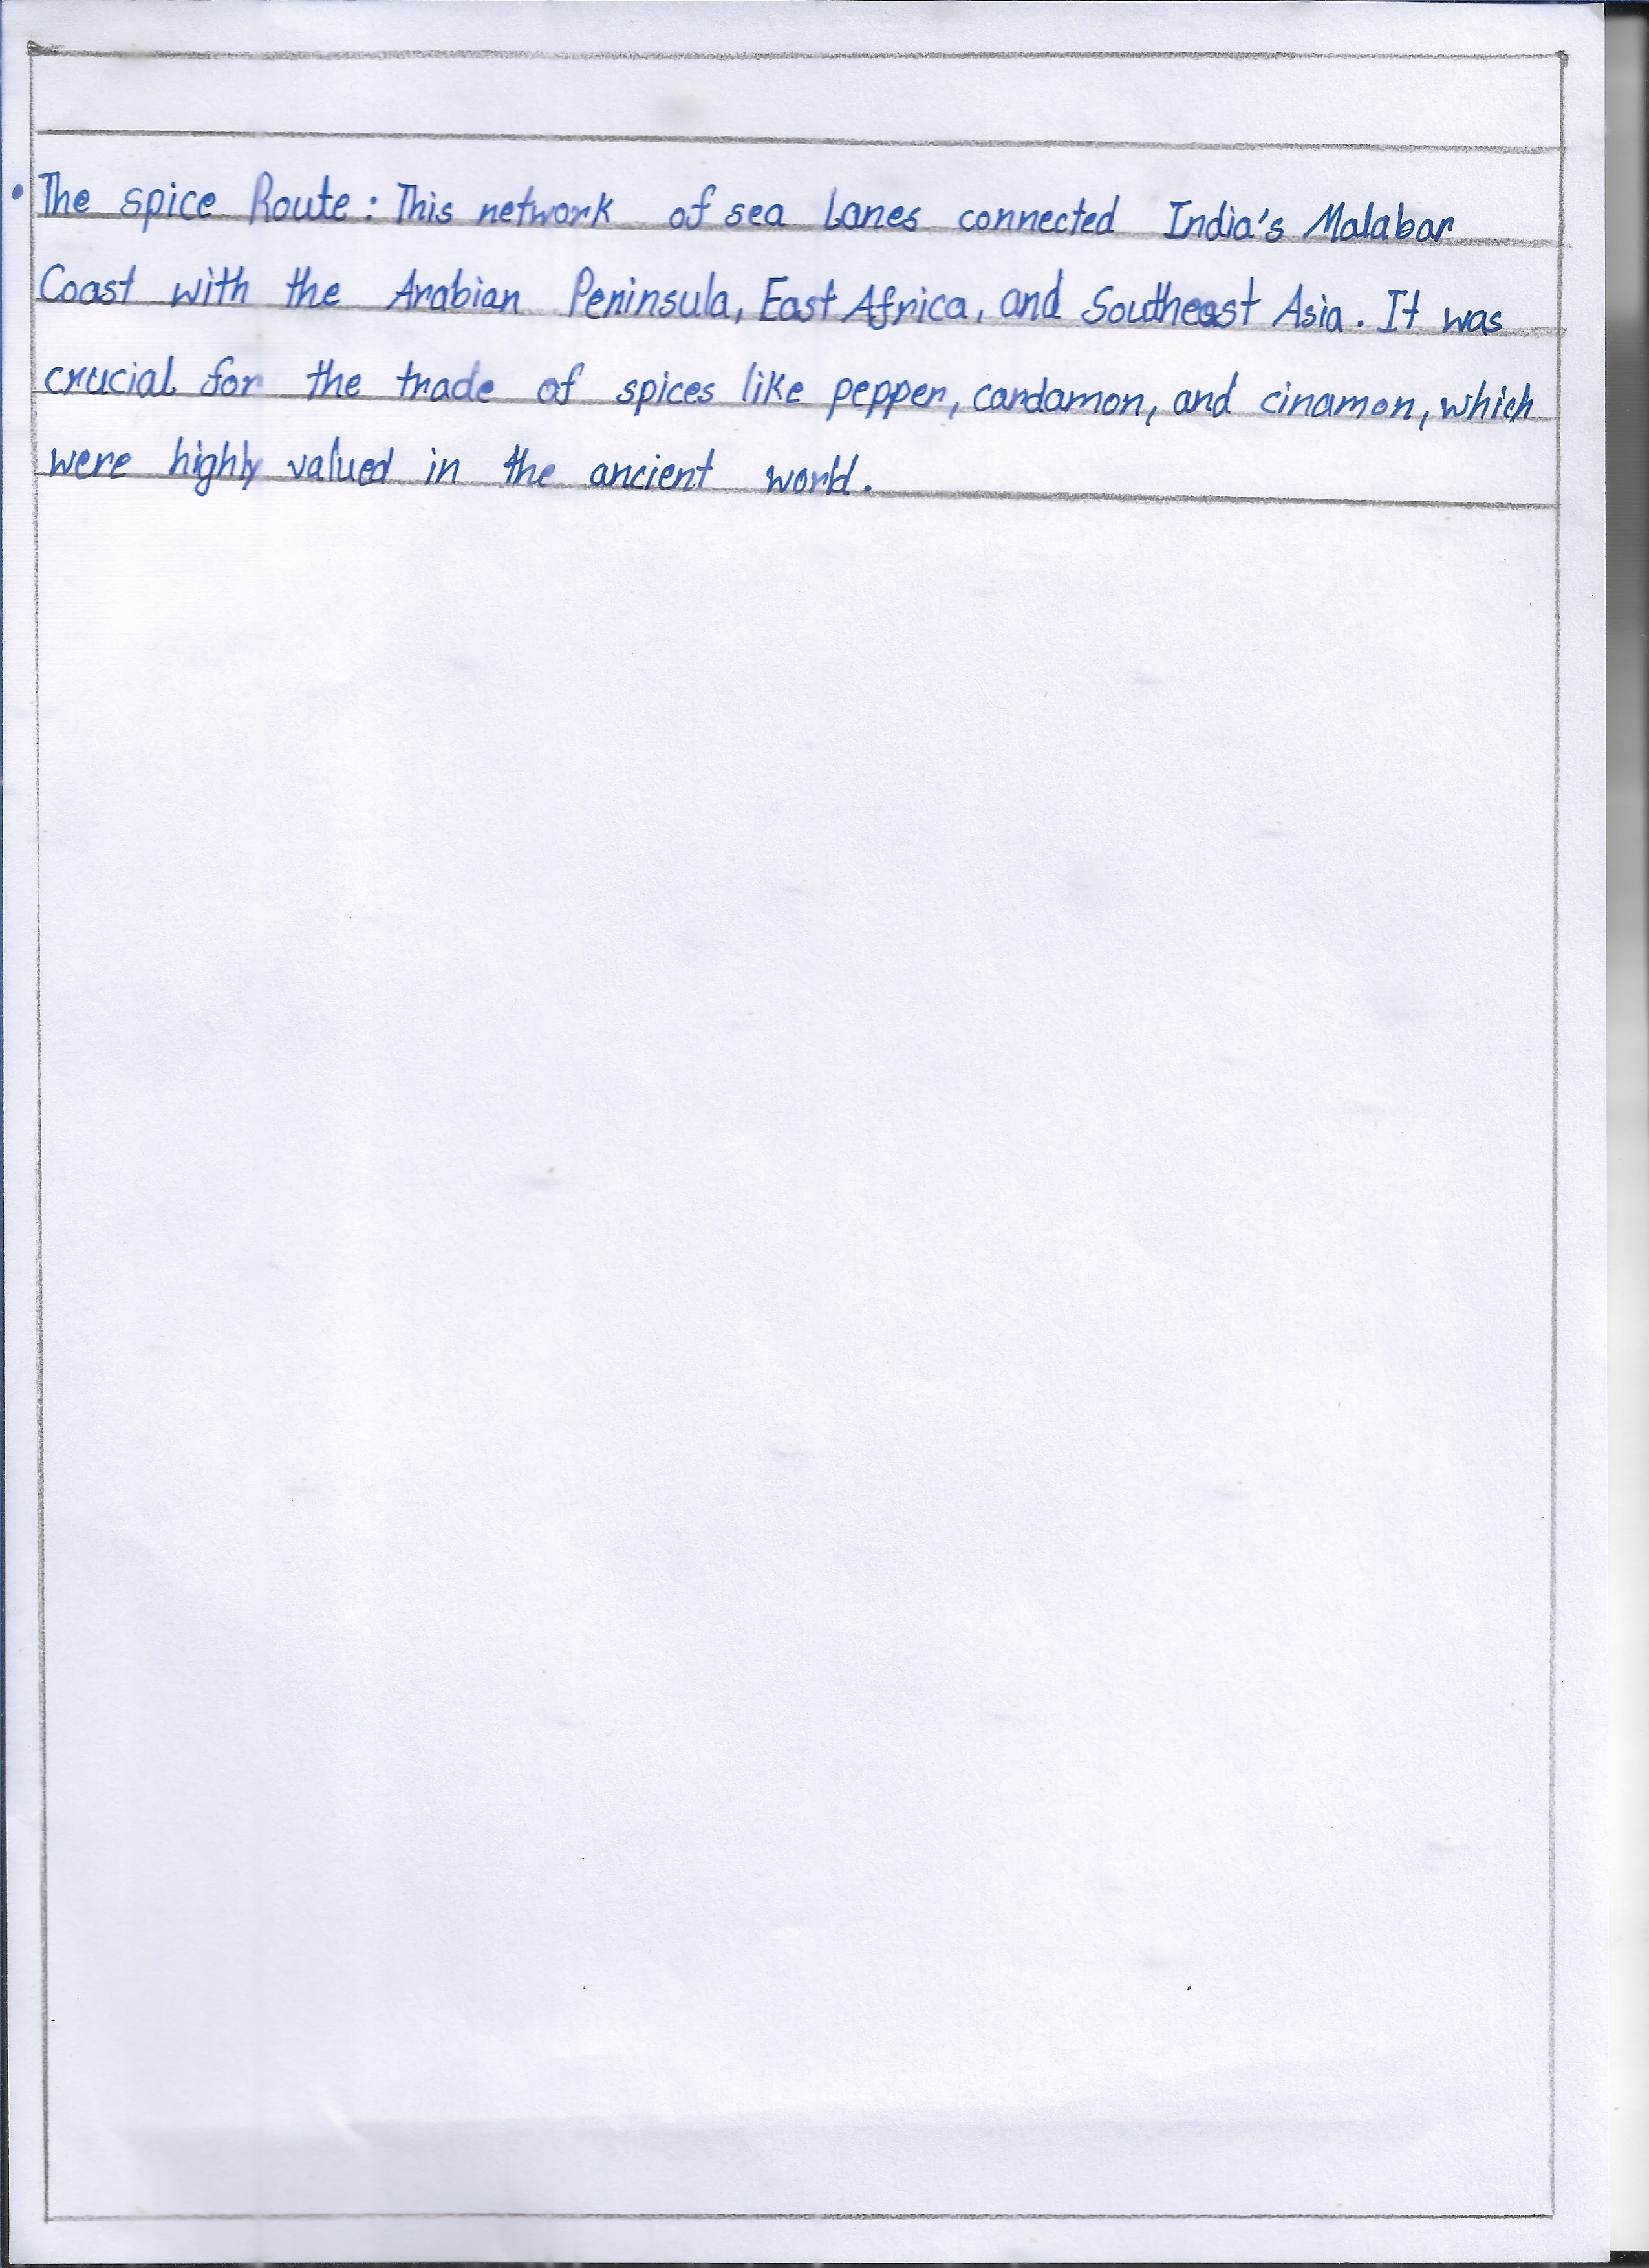 • The spice Route : This network of sea lanes connected India's Malabar
Coast with the Arabian Peninsula, East Africa, and Southeast Asia. It was
crucial for the trade of spices like pepper, cardamon, and cinamon, which
were highly valued in the ancient world.